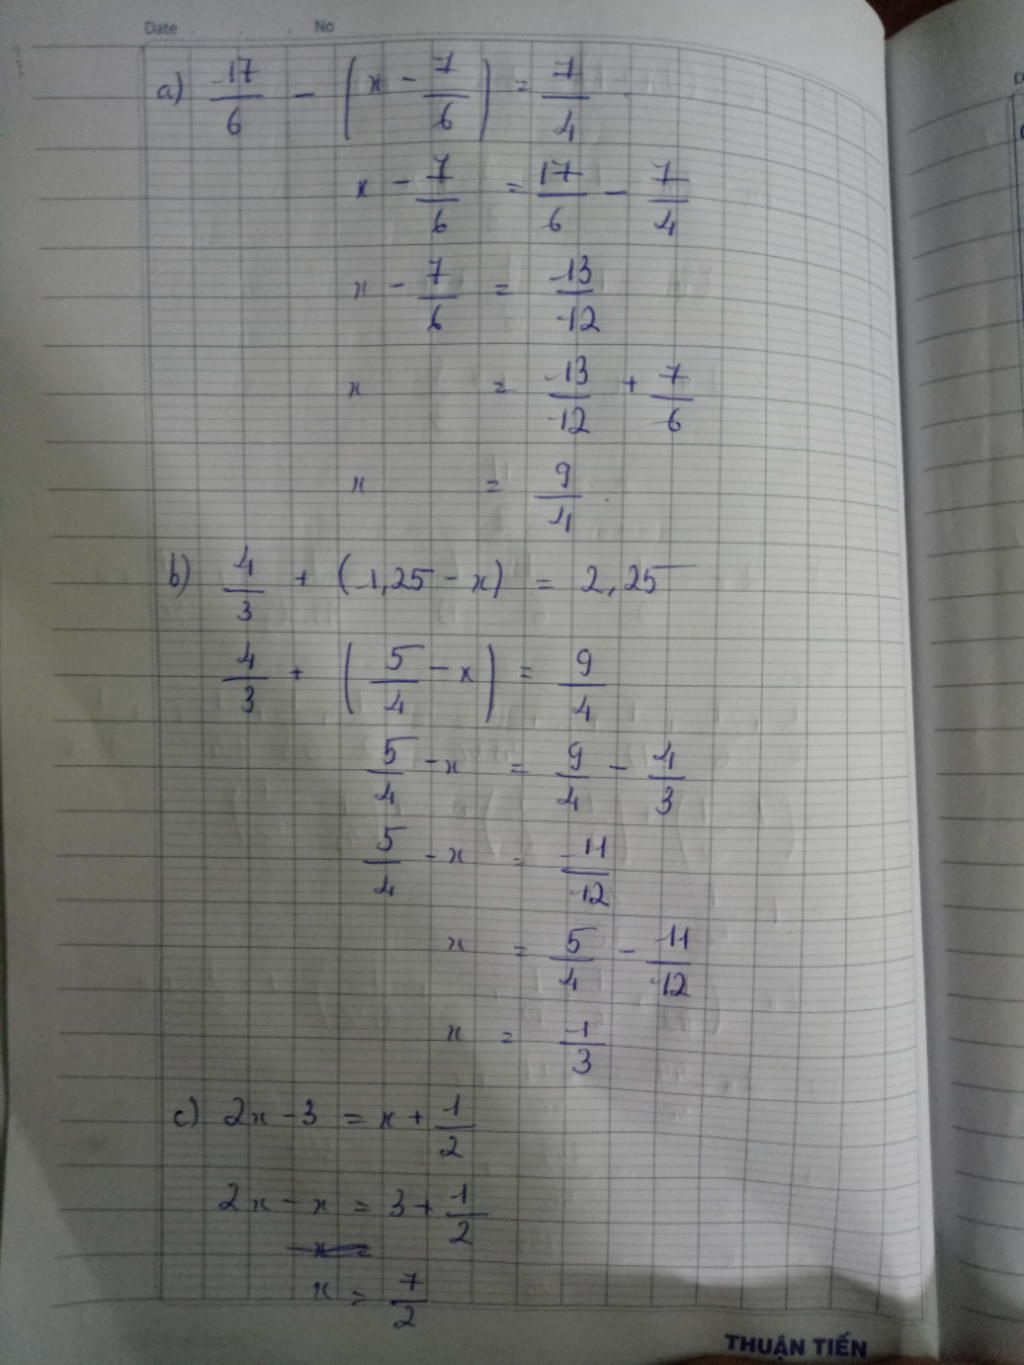 Date No
a) 17/6 - (x - 7/6) = 7/4
x - 7/6 = 17/6 - 7/4
x - 7/6 = 13/12
x = 13/12 + 7/6
x = 9/4
b) 4/3 + (1,25 - x) = 2,25
4/3 + (5/4 - x) = 9/4
5/4 - x = 9/4 - 4/3
5/4 - x = 11/12
x = 5/4 - 11/12
x = 1/3
c) 2x - 3 = x + 1/2
2x - x = 3 + 1/2
x = 7/2
THUẬN TIẾN